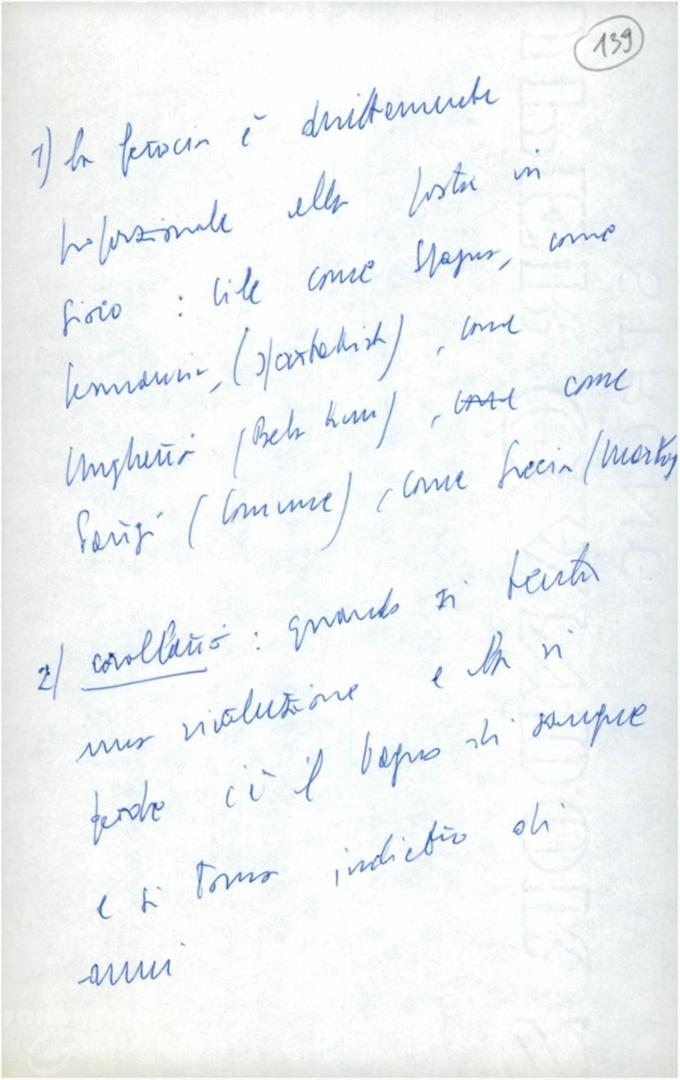 139
1) la ferocia è direttamente
proporzionale alla posta in
gioco : Cile come Spagna, come
Germania, (Spartakisti), come
Ungheria (Bela Kun), come come
Parigi (Comune), come Grecia (Markos
2) corollario : quando si tenta
una rivoluzione e la si
perde c'è il bagno di sangue
e si torna indietro di
anni